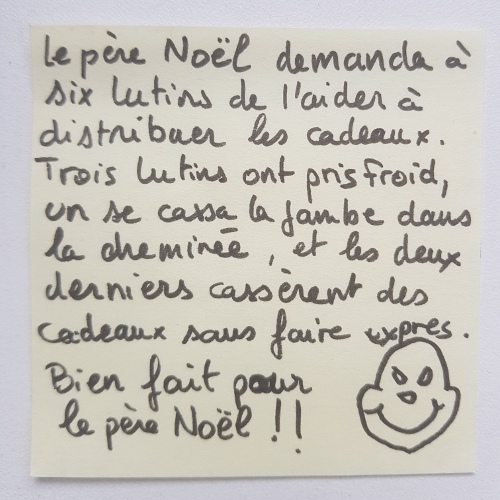 Le père Noël demanda à
six lutins de l'aider à
distribuer les cadeaux.
Trois lutins ont pris froid,
un se cassa la jambe dans
la cheminée, et les deux
derniers cassèrent des
cadeaux sans faire exprès.
Bien fait pour
le père Noël !!